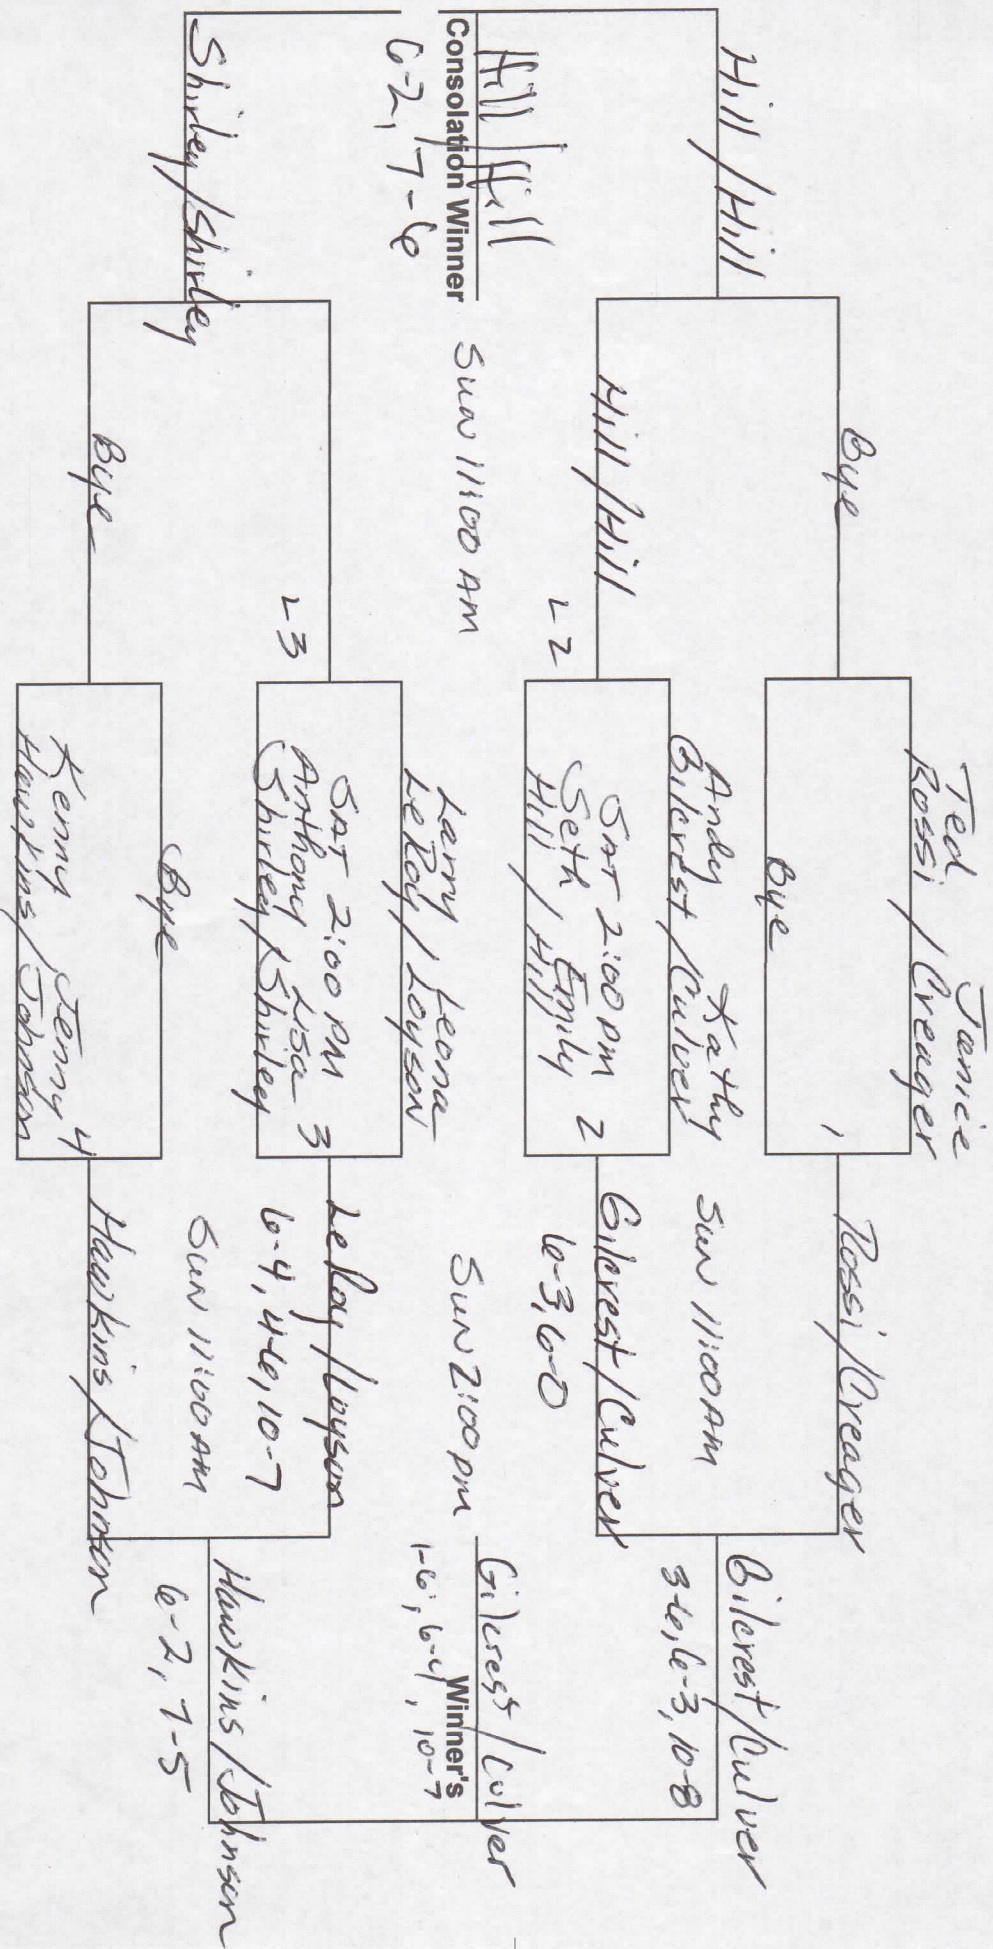 Ted Janice
Rossi / Creager
Bye
1
Andy Kathy
Gilcrest / Culver
SAT 2:00 pm
Seth / Emily 2
Hill / Hill
Larry Leona
LeRoy / Loyson
SAT 2:00 PM
Anthony Lisa 3
Shirley / Shirley
Bye
Kenny Jenny 4
Hawkins / Johnson
Rossi / Creager
Sun 11:00 AM
Gilcrest / Culver
6-3, 6-0
LeRoy / Loyson
6-4, 4-6, 10-7
Sun 11:00 AM
Hawkins / Johnson
Gilcrest / Culver
3-6, 6-3, 10-8
Sun 2:00 pm
Gilcrest / Culver
Winner's
1-6, 6-4, 10-7
Hawkins / Johnson
6-2, 7-5
Bye
Hill / Hill
L2
L3
Bye
Hill / Hill
Sun 11:00 AM
Hill / Hill
Consolation Winner
6-2, 7-6
Shirley / Shirley